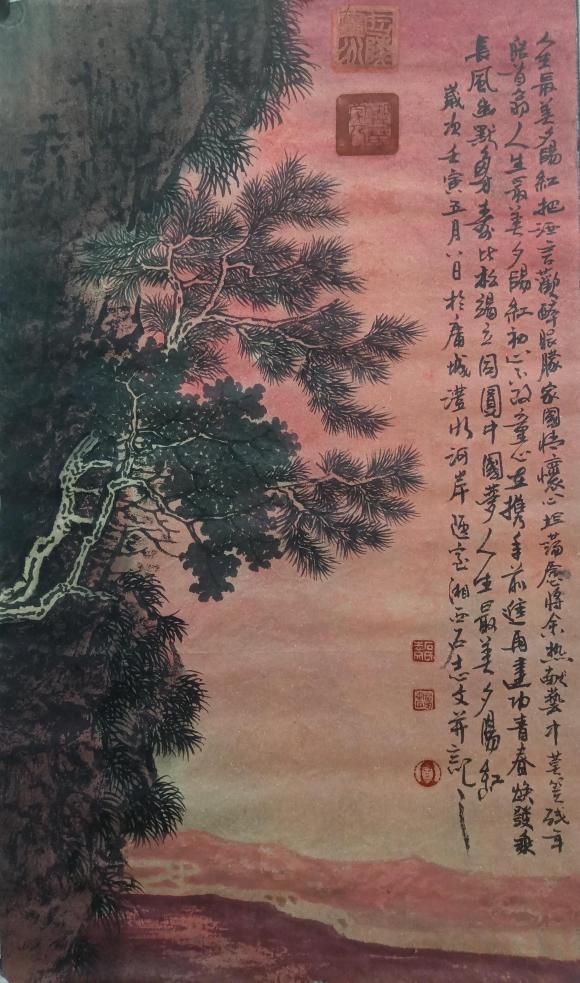 人生最美夕陽紅把酒言歡醉眼朦家國情懷心坦蕩應將余热献藝中莫笑殘年
皓首翁人生最美夕陽紅初心不改童心在携手前進再建功青春焕發乘
長風幽默身壽比松竭立同圓中國夢人生最美夕陽紅
歲次壬寅五月八日於庸城澧水河岸陋室湘西石志文并記